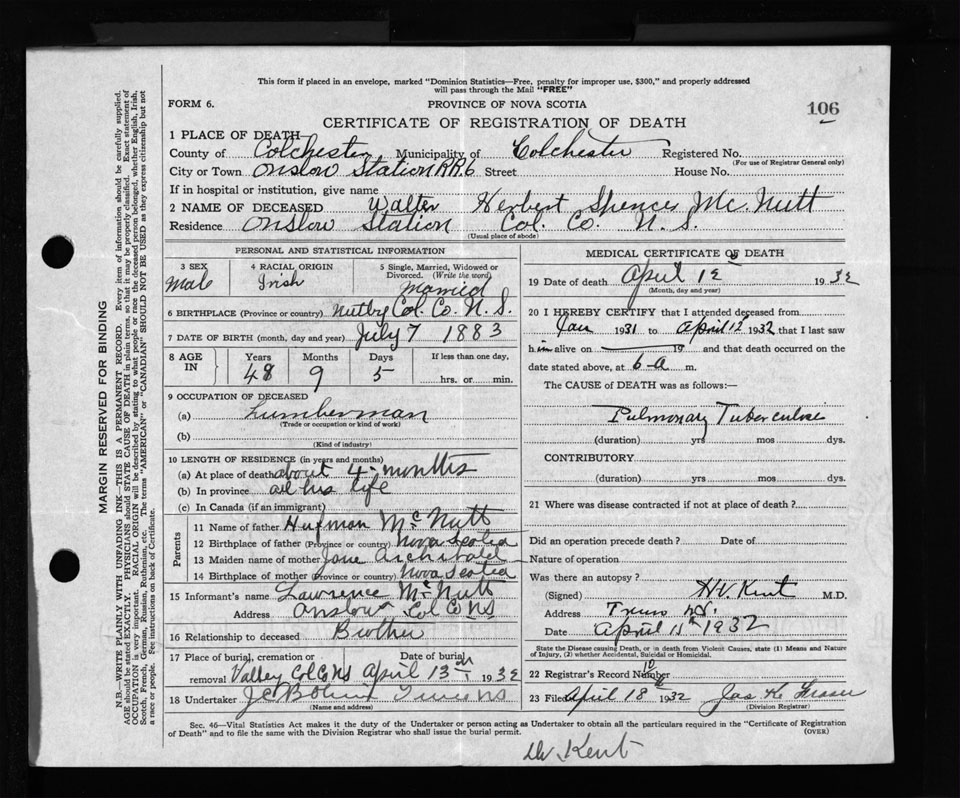 This form if placed in an envelope, marked "Dominion Statistics—Free, penalty for improper use, $300," and properly addressed
will pass through the Mail "FREE"
FORM 6.
PROVINCE OF NOVA SCOTIA
106
CERTIFICATE OF REGISTRATION OF DEATH
1 PLACE OF DEATH—
County of Colchester Municipality of Colchester Registered No.
(For use of Registrar General only)
City or Town Onslow Station R.R.6 Street House No.
If in hospital or institution, give name
2 NAME OF DECEASED Walter Herbert Spencer Mc. Nutt
Residence Onslow Station Col. Co. N. S.
(Usual place of abode)
PERSONAL AND STATISTICAL INFORMATION
3 SEX Male
4 RACIAL ORIGIN Irish
5 Single, Married, Widowed or Divorced. (Write the word) Married
6 BIRTHPLACE (Province or country) Nutby Col. Co. N. S.
7 DATE OF BIRTH (month, day and year) July 7 1883
8 AGE IN Years 48 Months 9 Days 5 If less than one day, hrs. or min.
9 OCCUPATION OF DECEASED
(a) Lumberman
(Trade or occupation or kind of work)
(b)
(Kind of industry)
10 LENGTH OF RESIDENCE (in years and months)
(a) At place of death about 4-months
(b) In province all his life
(c) In Canada (if an immigrant)
Parents
11 Name of father McNutt
12 Birthplace of father (Province or country) Nova Scotia
13 Maiden name of mother Jane Archibald
14 Birthplace of mother (Province or country) Nova Scotia
15 Informant's name Lawrence McNutt
Address Onslow Col Co NS
16 Relationship to deceased Brother
17 Place of burial, cremation or removal Valley Col Co NS Date of burial April 13th 1932
18 Undertaker Truro NS
(Name and address)
MEDICAL CERTIFICATE OF DEATH
19 Date of death April 12 1932
(Month, day and year)
20 I HEREBY CERTIFY that I attended deceased from
Jan 1931 to April 12 1932 that I last saw
him alive on 19 and that death occurred on the
date stated above, at 6-a m.
The CAUSE OF DEATH was as follows:
Pulmonary Tuberculosis
(duration) yrs mos dys.
CONTRIBUTORY
(duration) yrs mos dys.
21 Where was disease contracted if not at place of death?
Did an operation precede death? Date of
Nature of operation
Was there an autopsy?
(Signed) H.V. Kent M.D.
Address Truro N.S.
Date April 1932
State the Disease causing Death, or in death from Violent Causes, state (1) Means and Nature
of Injury, (2) whether Accidental, Suicidal or Homicidal.
22 Registrar's Record Number 10
23 Filed April 18th 1932
(Division Registrar)
Sec. 46—Vital Statistics Act makes it the duty of the Undertaker or person acting as Undertaker to obtain all the particulars required in the "Certificate of Registration
of Death" and to file the same with the Division Registrar who shall issue the burial permit.
(OVER)
Dr. Kent
MARGIN RESERVED FOR BINDING
N.B.—WRITE PLAINLY WITH UNFADING INK—THIS IS A PERMANENT RECORD. Every item of information should be carefully supplied.
AGE should be stated EXACTLY. PHYSICIANS should STATE CAUSE OF DEATH in plain terms, so that it may be properly classified. Exact statement of
OCCUPATION is very important. RACIAL ORIGIN will be described by stating to what people or race the deceased person belonged, whether English, Irish,
Scotch, French, German, Russian, Ruthenian, etc. The terms "AMERICAN" or "CANADIAN" SHOULD NOT BE USED as they express citizenship but not
a race or people. See instructions on back of Certificate.